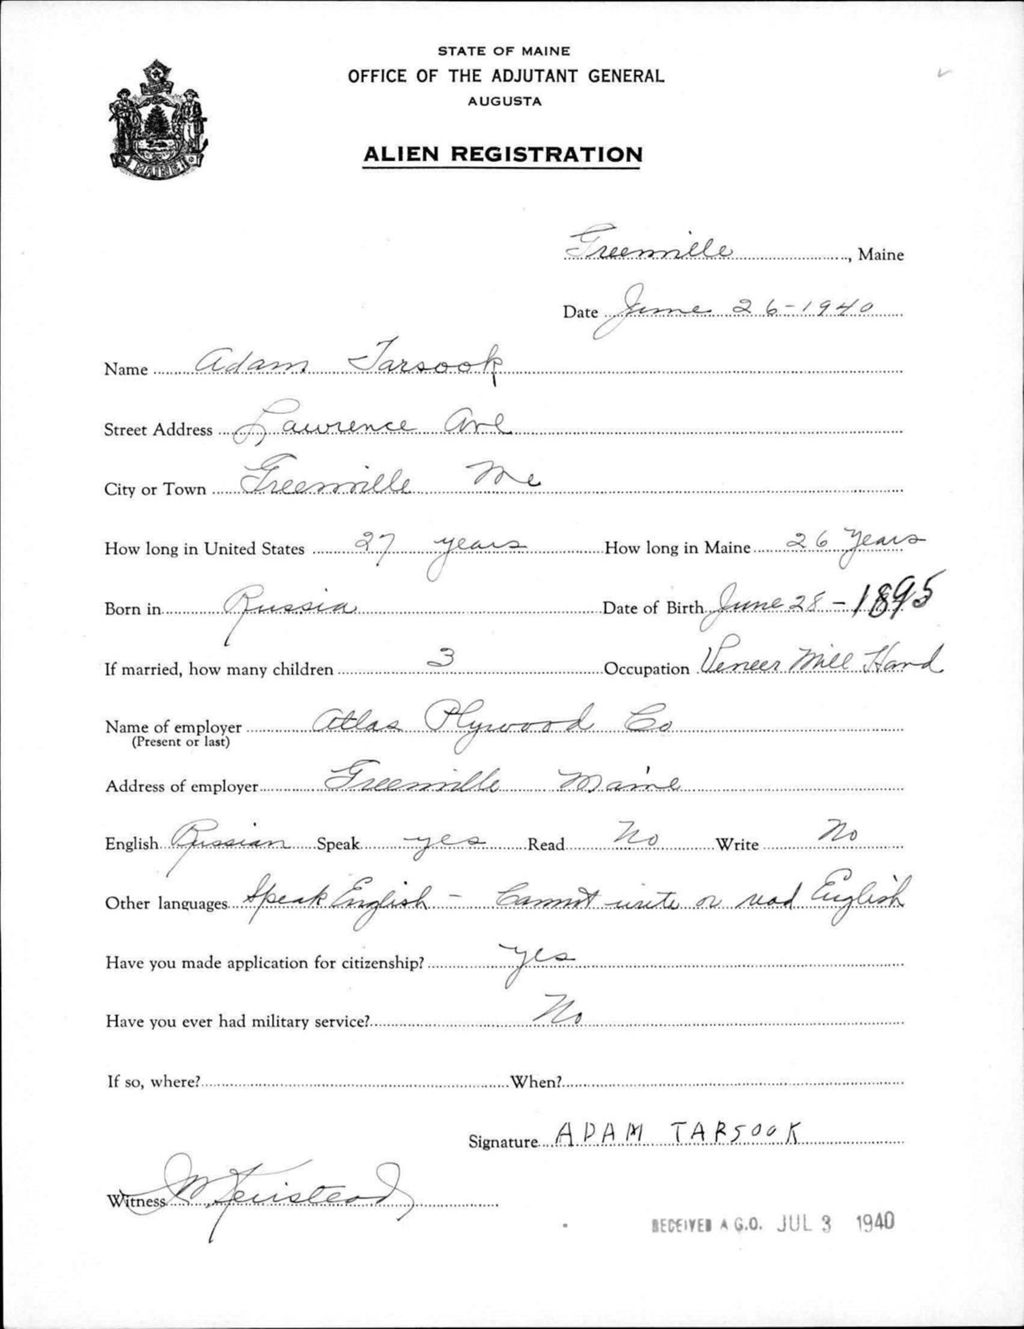 STATE OF MAINE
OFFICE OF THE ADJUTANT GENERAL
AUGUSTA
ALIEN REGISTRATION
MAINE
Greenville, Maine
Date June 26-1940
Name Adam Tarsook
Street Address Lawrence Ave
City or Town Greenville Me
How long in United States 27 years How long in Maine 26 Years
Born in Russia Date of Birth June 28 - 1895
If married, how many children 3 Occupation Veneer Mill Hand
Name of employer Atlas Plywood Co
(Present or last)
Address of employer Greenville Maine
English Russian Speak yes Read No Write No
Other languages Speak English - Cannot write or read English
Have you made application for citizenship? yes
Have you ever had military service? No
If so, where? When?
Signature ADAM TARSOOK
Witness
RECEIVED A.G.O. JUL 3 1940